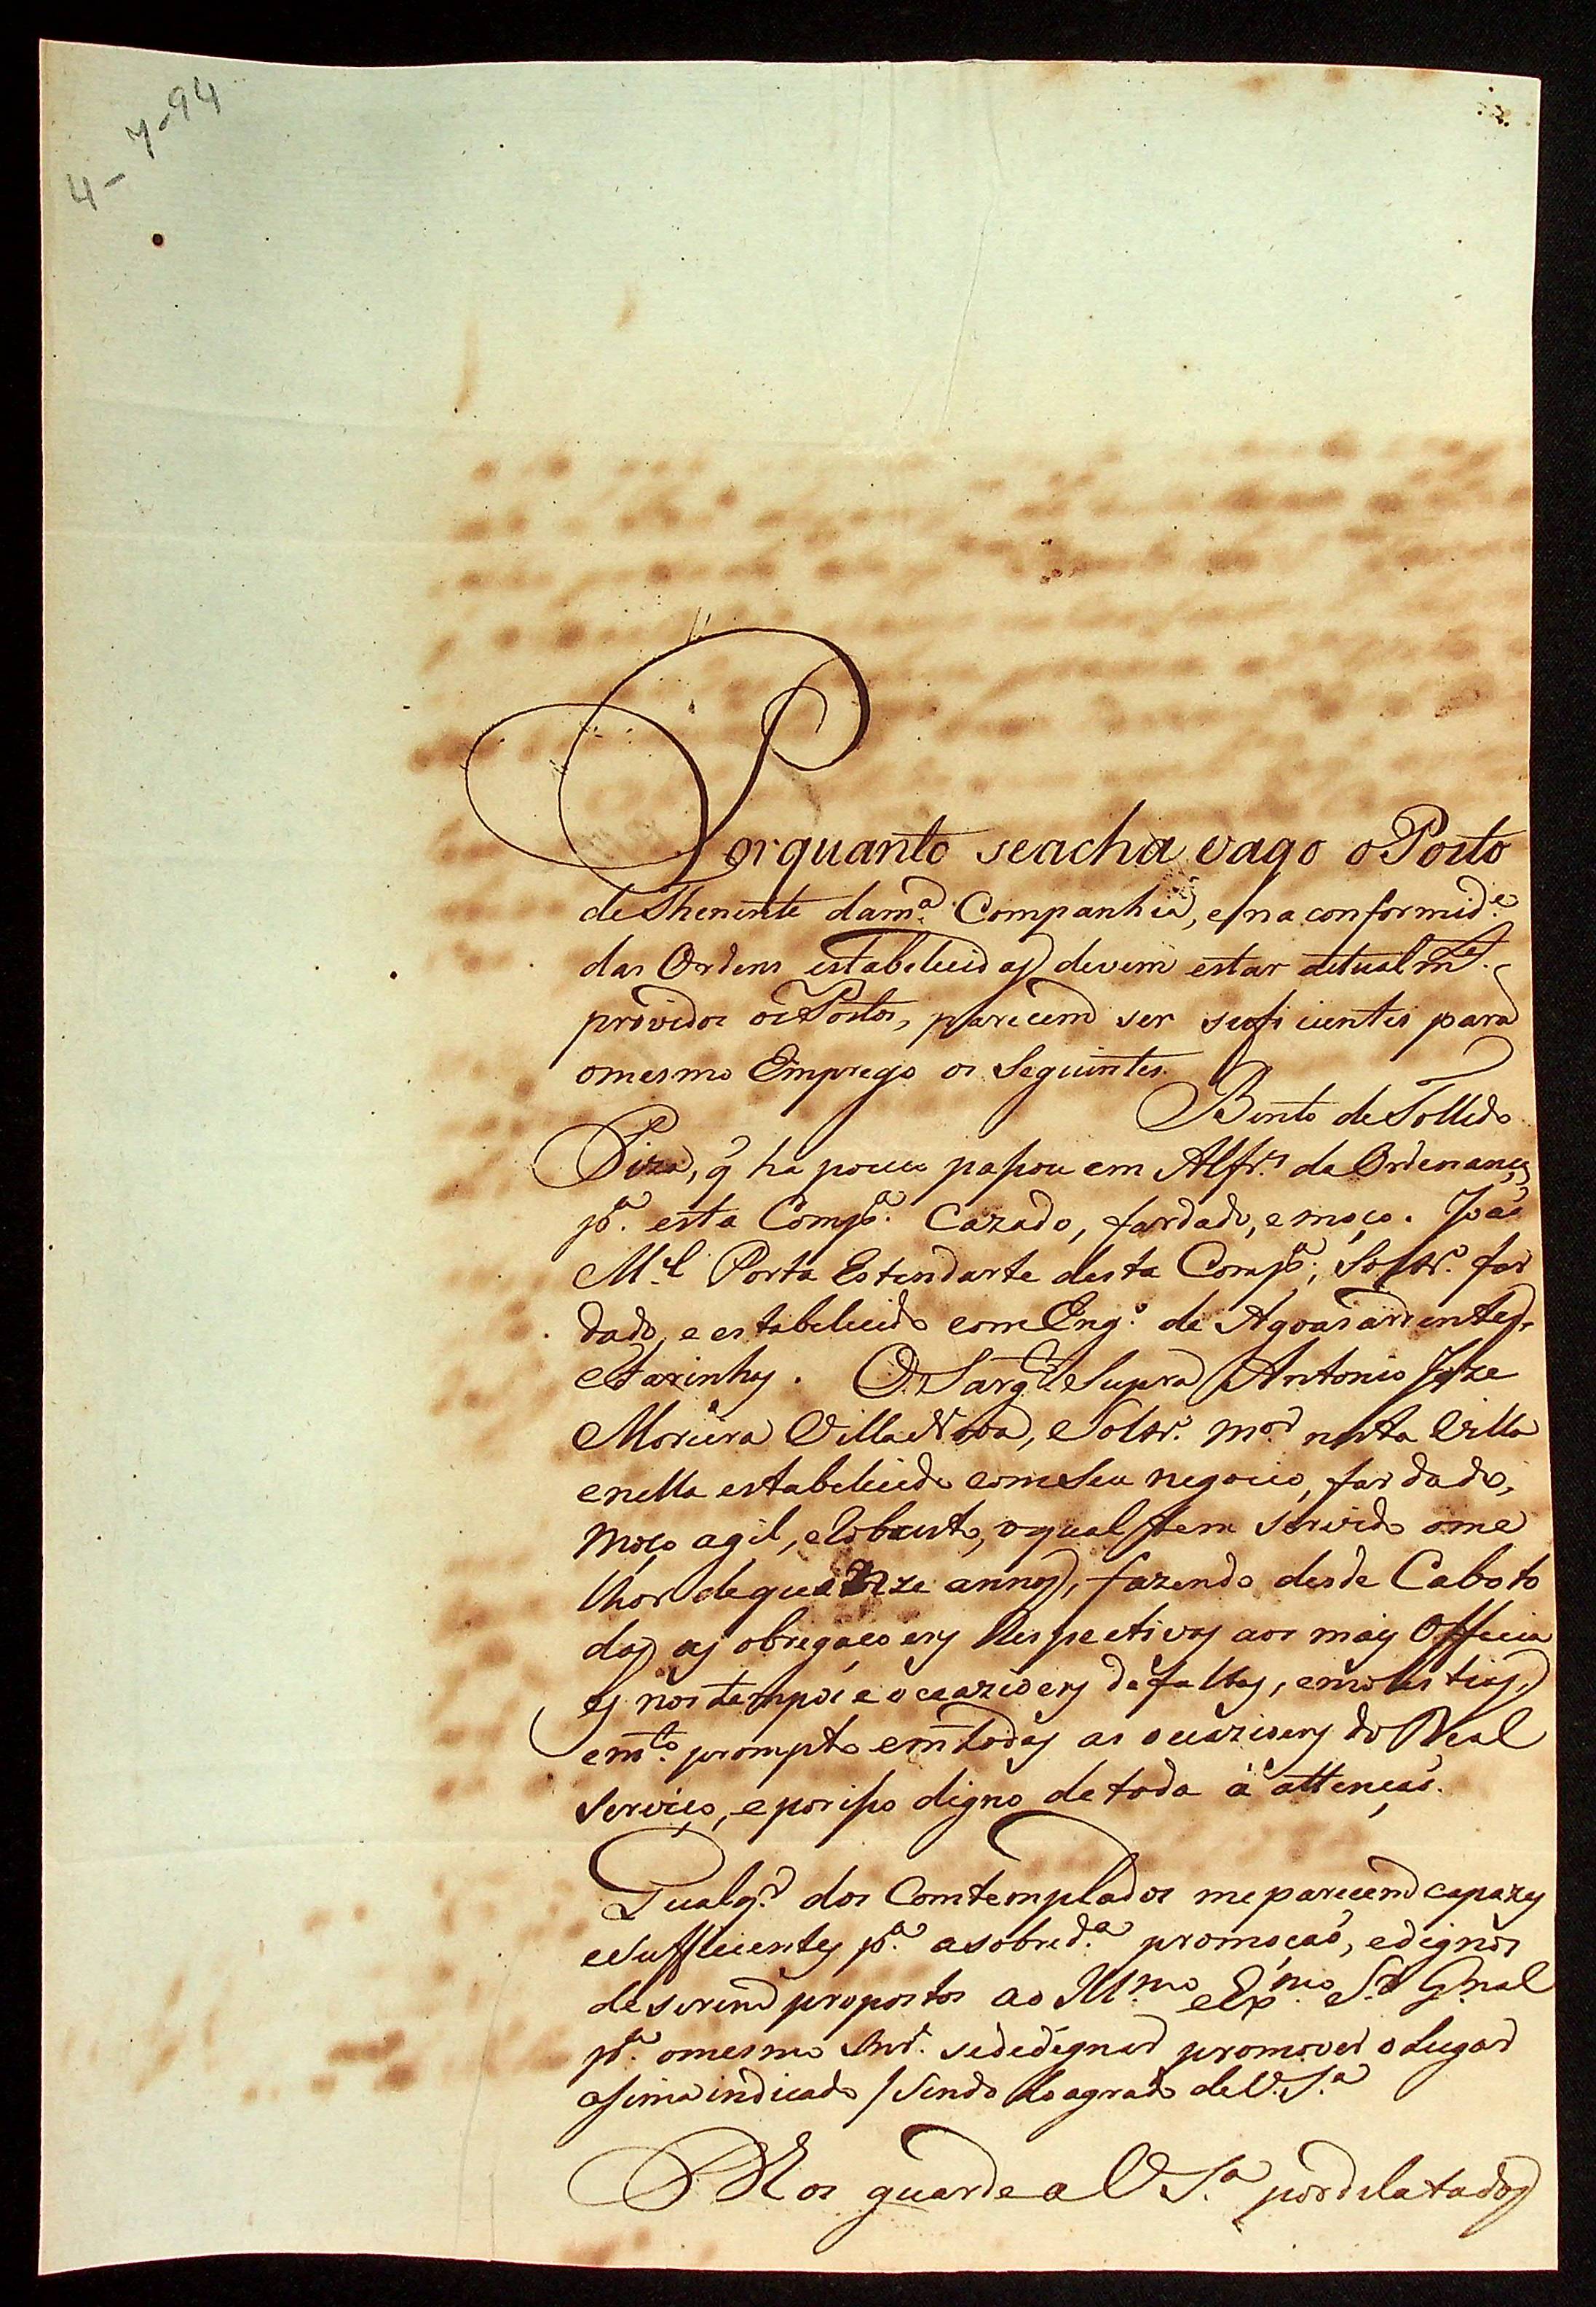 4-7-94
Porquanto seacha vago o Posto
de Thenente dam.ª Companhia, ena conformid.e
das Ordens estabelecidas devem estar actualm.te
providos os Postos, parecem ser suficientes para
omesmo Emprego os Seguintes.
Bento de Tolledo
Piza, q̃ ha pouco pasou em Alfr.s da Ordenança
p.ª esta Comp.ª Cazado, fardado, emoço. Joaõ
M.el Porta Estendarte desta Comp.ª, Soltr.º far
dado, e estabelecido com Eng.º de Agoasardentes,
eFarinhas. O Sarg.to Supra Antonio Joze
Moreira Villa Nova, Soltr.º mor.or nesta Villa
enella estabelecido comSeu negocio, fardado,
moço agil, eRobusto, oqual tem servido ome
lhor dequatorze annos, fazendo desde Cabo to
das as obregaçoens Respectivas aos mais Officia
es nos tempos e occazioens defaltas, emolestias,
em.to prompto emtodas as occazioens do Real
serviço, eporiso digno detoda a attençaõ.
Qualq.r dos Comtemplados meparecem capazes
eSufficientes p.ª asobred.ª promoçaõ, edignos
deserem propostos ao Ill.mo eEx.mo S.r G.nal
p.ª omesmo Snr. sededignar promover o Lugar
asima indicado / Sendo do agrado deV.S.ª
D.s guarde a V S.ª pordilatados